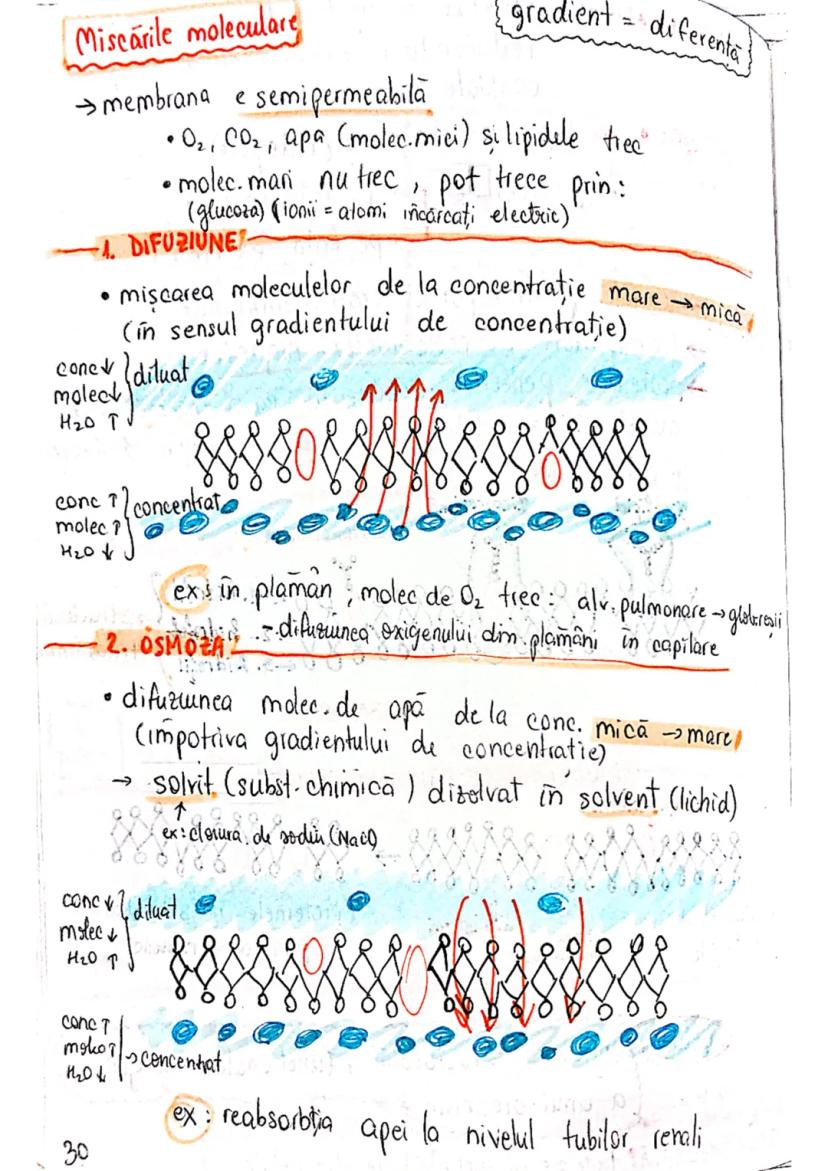 Mișcările moleculare
gradient = diferență
→ membrana e semipermeabilă
• O₂, CO₂, apa (molec. mici) și lipidele trec
• molec. mari nu trec, pot trece prin:
(glucoza) (ionii = atomi încărcați electric)
1. DIFUZIUNE
• mișcarea moleculelor de la concentrație mare → mică
(în sensul gradientului de concentrație)
conc ↓
molec ↓
H₂O ↑
diluat
conc ↑
molec ↑
H₂O ↓
concentrat
ex: în plămân, molec de O₂ trec: alv. pulmonare → glob. roșii
- difuziunea oxigenului din plămâni în capilare
2. OSMOZA
• difuziunea molec. de apă de la conc. mică → mare
(împotriva gradientului de concentrație)
→ solvit (subst. chimică) dizolvat în solvent (lichid)
↑
ex: clorură de sodiu (NaCl)
conc ↓
molec ↓
H₂O ↑
diluat
conc ↑
↑
H₂O ↓
→ concentrat
ex: reabsorbția apei la nivelul tubilor renali
30